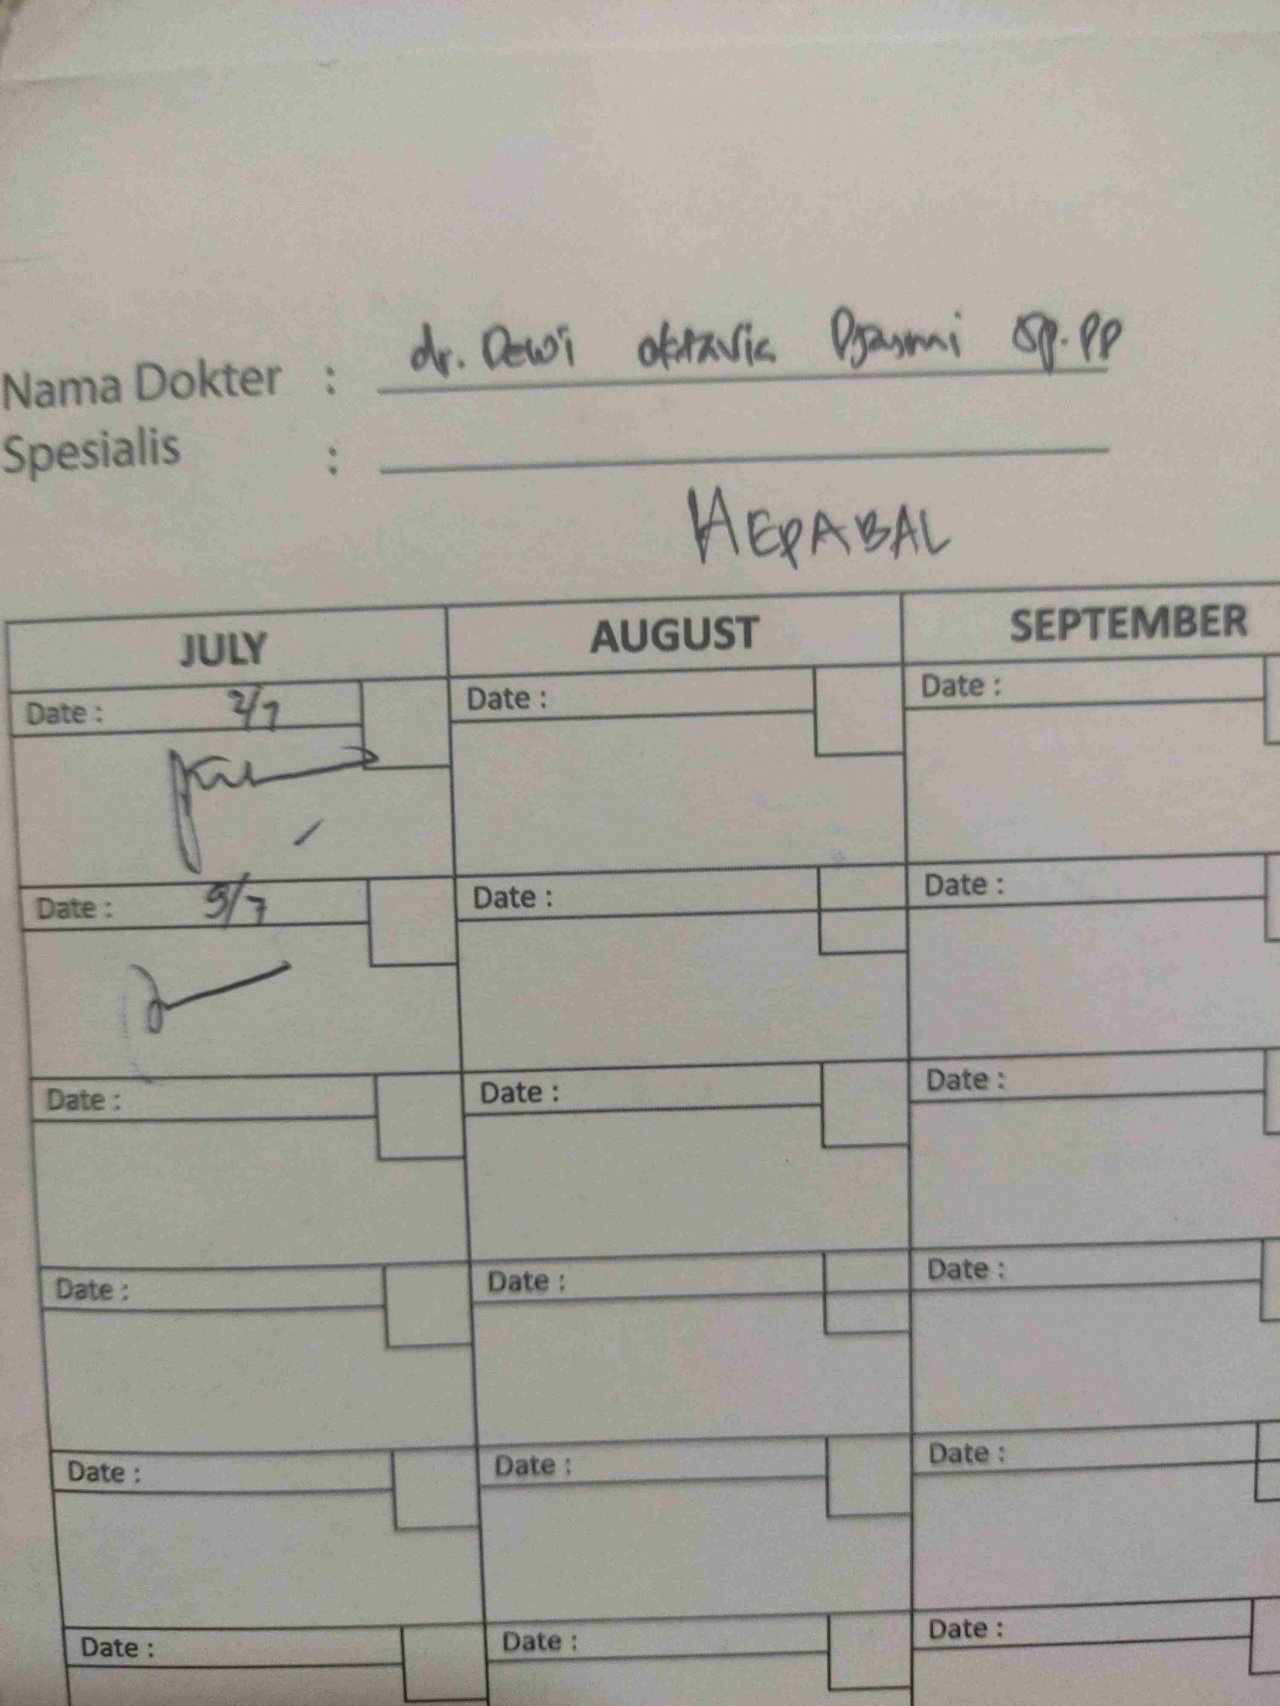 Nama Dokter : dr. Dewi Oktavia Djasmi Sp.PP
Spesialis :
HEPABAL
JULY AUGUST SEPTEMBER
Date : 2/7 Date : Date :
Date : 9/7 Date : Date :
Date : Date : Date :
Date : Date : Date :
Date : Date : Date :
Date : Date : Date :